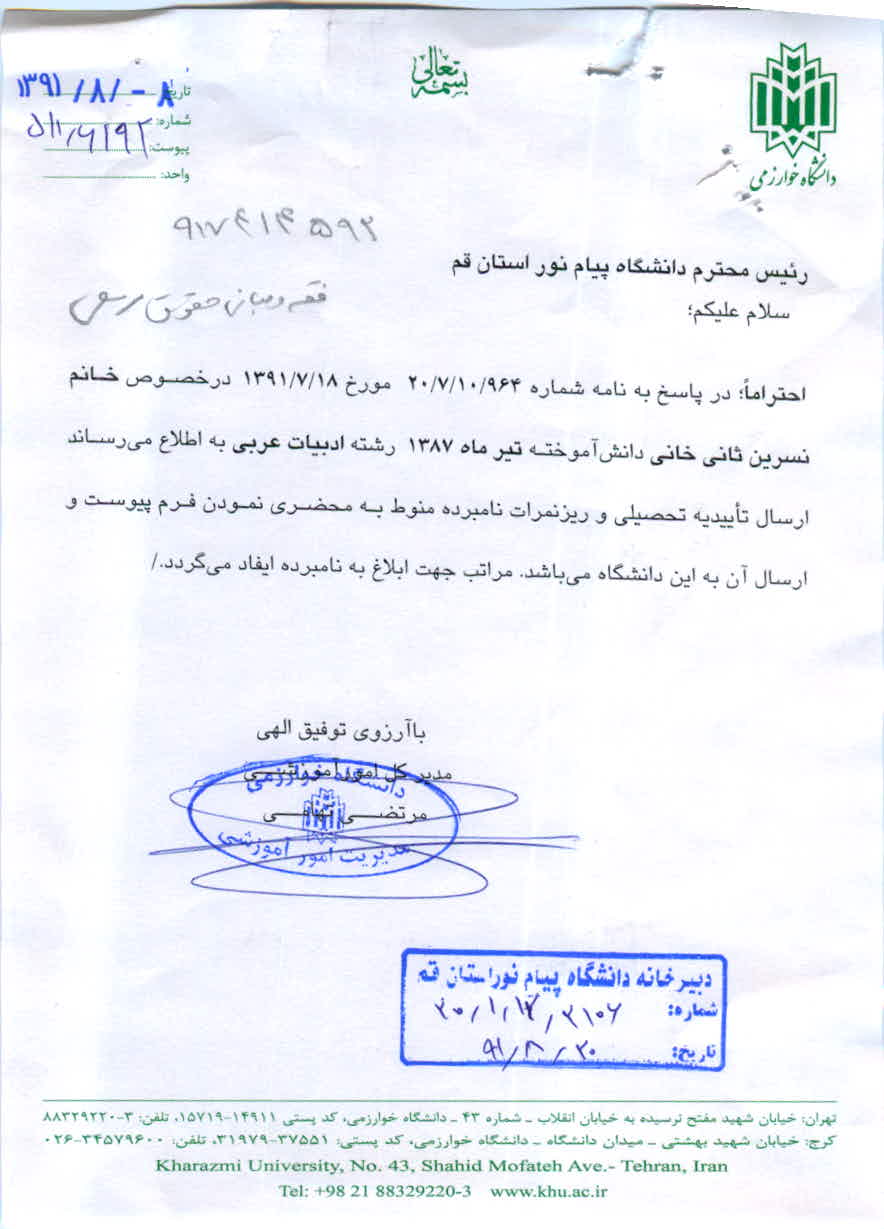 بسمه تعالی
دانشگاه خوارزمی
تاریخ: ۱۳۹۱/۸/-۸
شماره: ۵۱۱/۶۱۹۲
پیوست:
واحد:
۹۱۷۴۱۴۵۹۲
رئیس محترم دانشگاه پیام نور استان قم
فقه و مبانی حقوق
سلام علیکم؛
احتراماً؛ در پاسخ به نامه شماره ۲۰/۷/۱۰/۹۶۴ مورخ ۱۳۹۱/۷/۱۸ درخصوص خانم
نسرین ثانی خانی دانش‌آموخته تیر ماه ۱۳۸۷ رشته ادبیات عربی به اطلاع می‌رساند
ارسال تأییدیه تحصیلی و ریزنمرات نامبرده منوط به محضری نمودن فرم پیوست و
ارسال آن به این دانشگاه می‌باشد. مراتب جهت ابلاغ به نامبرده ایفاد می‌گردد./
باآرزوی توفیق الهی
مدیر کل امور آموزشی
مرتضی
دانشگاه خوارزمی
مدیریت امور آموزشی
دبیرخانه دانشگاه پیام نور استان قم
شماره:
تاریخ: ۹۱/۸/۲۰
تهران: خیابان شهید مفتح نرسیده به خیابان انقلاب ـ شماره ۴۳ ـ دانشگاه خوارزمی، کد پستی ۱۴۹۱۱-۱۵۷۱۹، تلفن: ۳-۸۸۳۲۹۲۲۰
کرج: خیابان شهید بهشتی ـ میدان دانشگاه ـ دانشگاه خوارزمی، کد پستی: ۳۷۵۵۱-۳۱۹۷۹، تلفن: ۳۴۵۷۹۶۰۰-۰۲۶
Kharazmi University, No. 43, Shahid Mofateh Ave.- Tehran, Iran
Tel: +98 21 88329220-3 www.khu.ac.ir